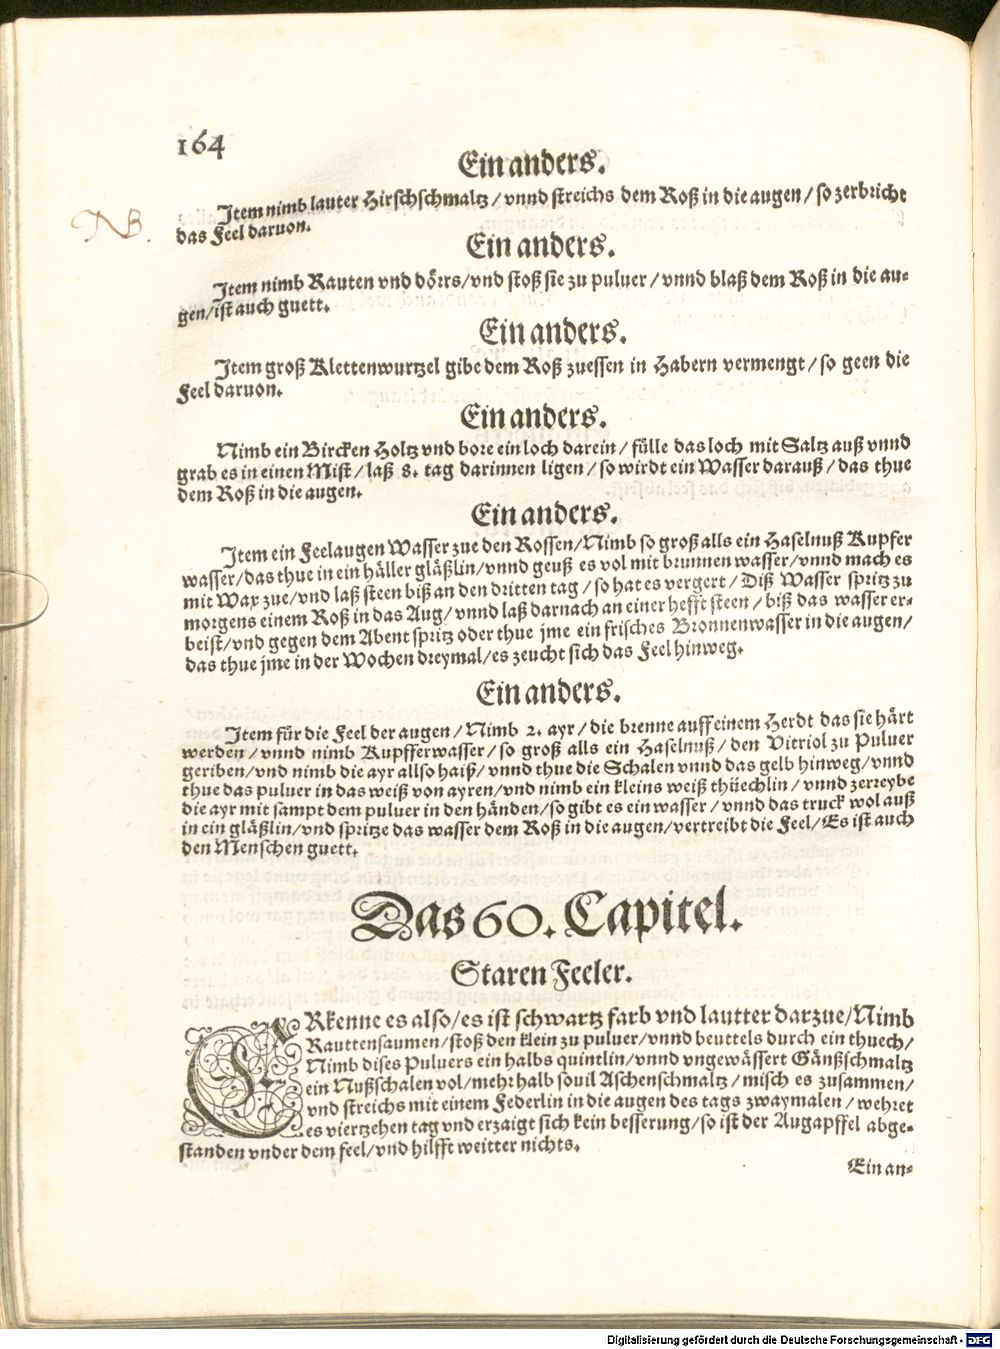 164
Ein anders.
Item nimb lauter Hirschschmaltz / vnnd streichs dem Roß in die augen / so zerbricht
NB.
das Feel daruon.
Ein anders.
Item nimb Rauten vnd dörrs/vnd stoß sie zu puluer / vnnd blaß dem Roß in die au-
gen/ist auch guett.
Ein anders.
Item groß Klettenwurtzel gibe dem Roß zuessen in Habern vermengt / so geen die
Feel daruon.
Ein anders.
Nimb ein Bircken Holtz vnd bore ein loch darein / fülle das loch mit Saltz auß vnnd
grab es in einen Mist / laß 8. tag darinnen ligen / so wirdt ein Wasser darauß / das thue
dem Roß in die augen.
Ein anders.
Item ein Feelaugen Wasser zue den Rossen/Nimb so groß alls ein Haselnuß Kupfer
wasser/das thue in ein häller gläßlin/vnnd geuß es vol mit brunnen wasser/vnnd mach es
mit Wax zue/vnd laß steen biß an den dritten tag / so hat es vergert / Diß Wasser spritz zu
morgens einem Roß in das Aug/ vnnd laß darnach an einer hefft steen / biß das wasser er-
beist/vnd gegen dem Abent spritz oder thue jme ein frisches Bronnenwasser in die augen/
das thue jme in der Wochen dreymal/es zeucht sich das Feel hinweg.
Ein anders.
Item für die Feel der augen / Nimb 2. ayr / die brenne auff einem Herdt das sie härt
werden / vnnd nimb Kupfferwasser / so groß alls ein Haselnuß / den Vitriol zu Puluer
geriben/vnd nimb die ayr allso haiß / vnnd thue die Schalen vnnd das gelb hinweg/vnnd
thue das puluer in das weiß von ayren/vnd nimb ein kleins weiß thüechlin / vnnd zerreybe
die ayr mit sampt dem puluer in den händen/so gibt es ein wasser / vnnd das truck wol auß
in ein gläßlin/vnd spritze das wasser dem Roß in die augen/vertreibt die Feel/Es ist auch
den Menschen guett.
Das 60. Capitel.
Staren Feeler.
ERkenne es also/es ist schwartz farb vnd lautter darzue/Nimb
Rauttensaumen/stoß den klein zu puluer/vnnd beuttels durch ein thuech/
Nimb dises Puluers ein halbs quintlin/vnnd vngewässert Gänßschmaltz
ein Nußschalen vol/mehr halb souil Aschenschmaltz / misch es zusammen/
vnd streichs mit einem Federlin in die augen des tags zwaymalen / wehret
es viertzehen tag vnd erzaigt sich kein besserung/so ist der Augapffel abge-
standen vnder dem feel/vnd hilfft weitter nichts.
Ein an-
Digitalisierung gefördert durch die Deutsche Forschungsgemeinschaft - DFG